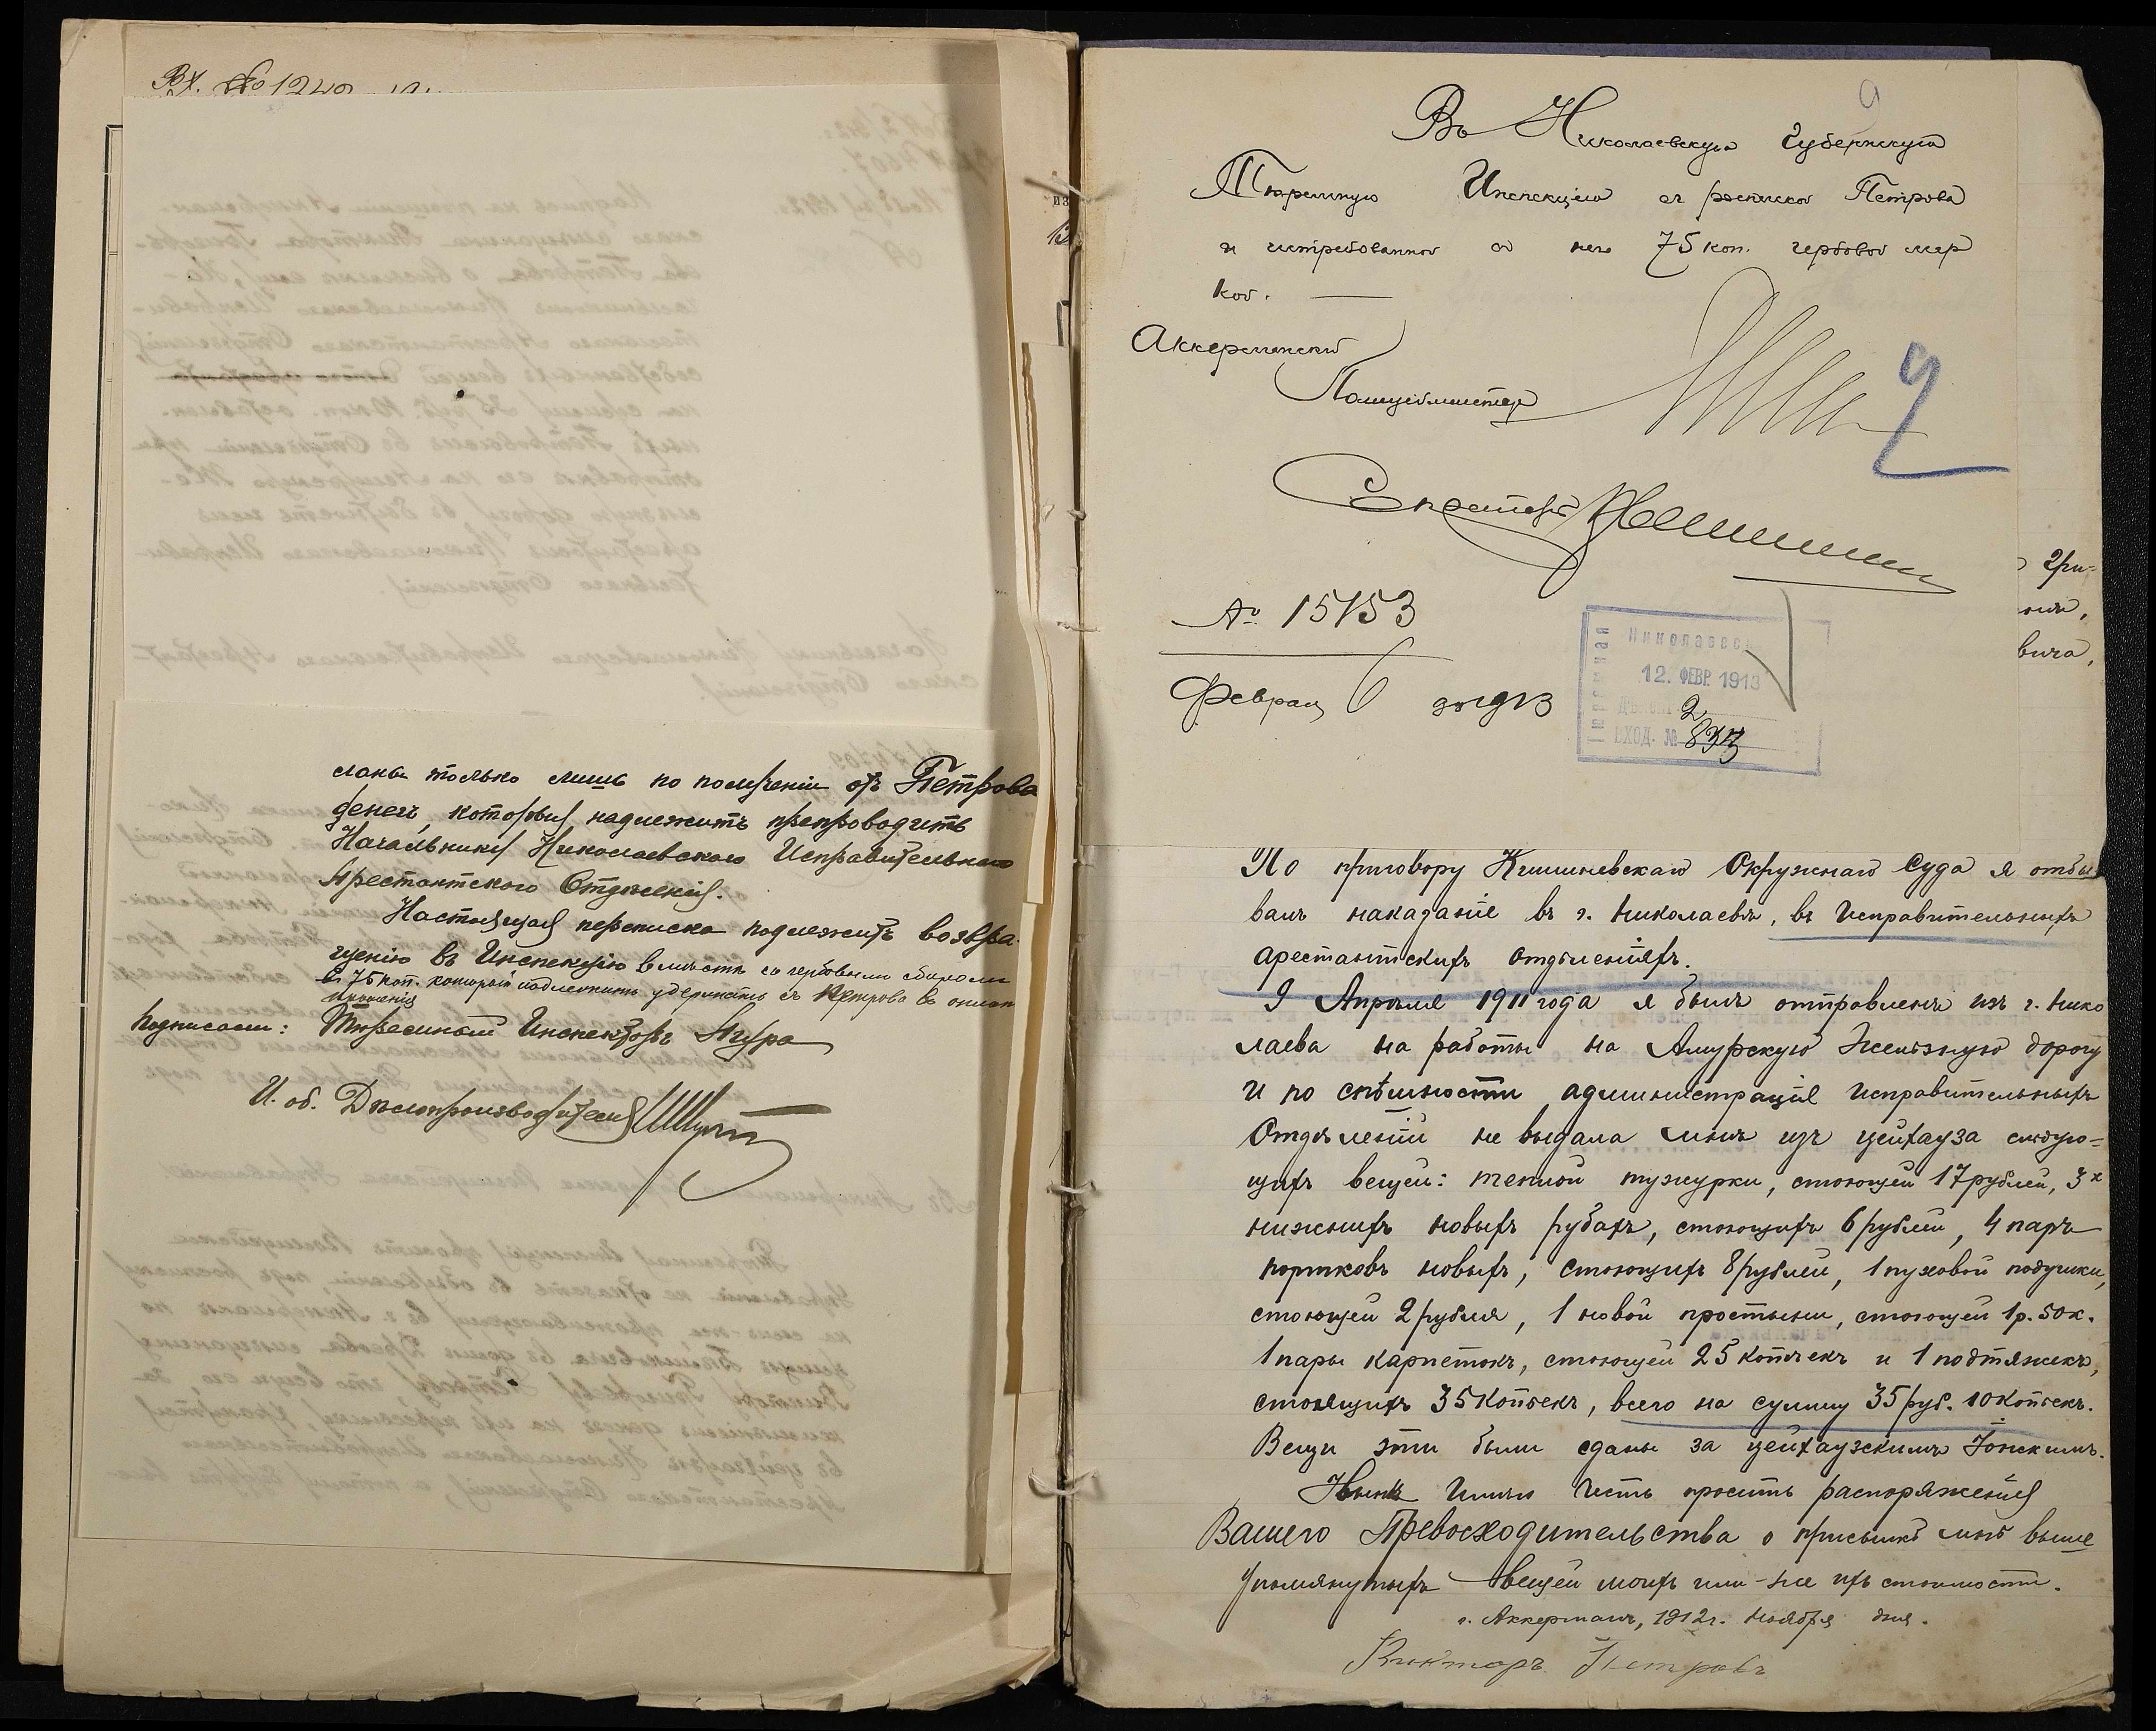 Вх. № 1240
сланы только лишь по полученіи отъ Петрова
денегъ, которыя надлежитъ препроводить
Начальнику Николаевскаго Исправительнаго
Арестантскаго Отдѣленія.
Настоящая переписка подлежитъ возвра-
щенію въ Инспекцію вмѣстѣ съ гербовымъ сборомъ
въ 75 коп. который надлежитъ удержать съ Петрова въ оплат
прошенія
Подписали: Тюремный Инспекторъ
И. об. Дѣлопроизводителя
9
Въ Николаевскую Губернскую
Тюремную Инспекцію съ роспиской Петрова
и истребованной отъ него 75 коп. гербовой мар
кой.
Аккерманскій
Полицеймейстеръ
9
Секретарь
№ 15153
Февраля 6 дня 1913
Николаевск
12. ФЕВР. 1913
2
ВХОД. №
гри-
вича,
По приговору Кишиневскаго Окружнаго Суда я отбы
валъ наказаніе въ г. Николаевѣ, въ Исправительныхъ
арестантскихъ отдѣленіяхъ.
9 Апрѣля 1911 года я былъ отправленъ изъ г. Нико
лаева на работы на Амурскую Желѣзную дорогу
и по спѣшности администрація исправительныхъ
Отдѣленій не выдала мнѣ изъ цейхауза слѣдую=
щихъ вещей: теплой тужурки, стоющей 17 рублей, 3х
нижнихъ новыхъ рубахъ, стоющихъ 6 рублей, 4 паръ
портковъ новыхъ, стоющихъ 8 рублей, 1 пуховой подушки,
стоющей 2 рубля, 1 новой простыни, стоющей 1 р. 50 к.
1 пары карпетокъ, стоющей 25 копѣекъ и 1 подтяжекъ,
стоящихъ 35 копѣекъ, всего на сумму 35 руб. 10 копѣекъ.
Вещи эти были сданы за цейхаузскимъ
Нынѣ имѣю честь просить распоряженія
Вашего Превосходительства о присылкѣ мнѣ выше
упомянутыхъ вещей моихъ или-же ихъ стоимости.
г. Аккерманъ, 1912 г. Ноября дня.
Викторъ Петровъ